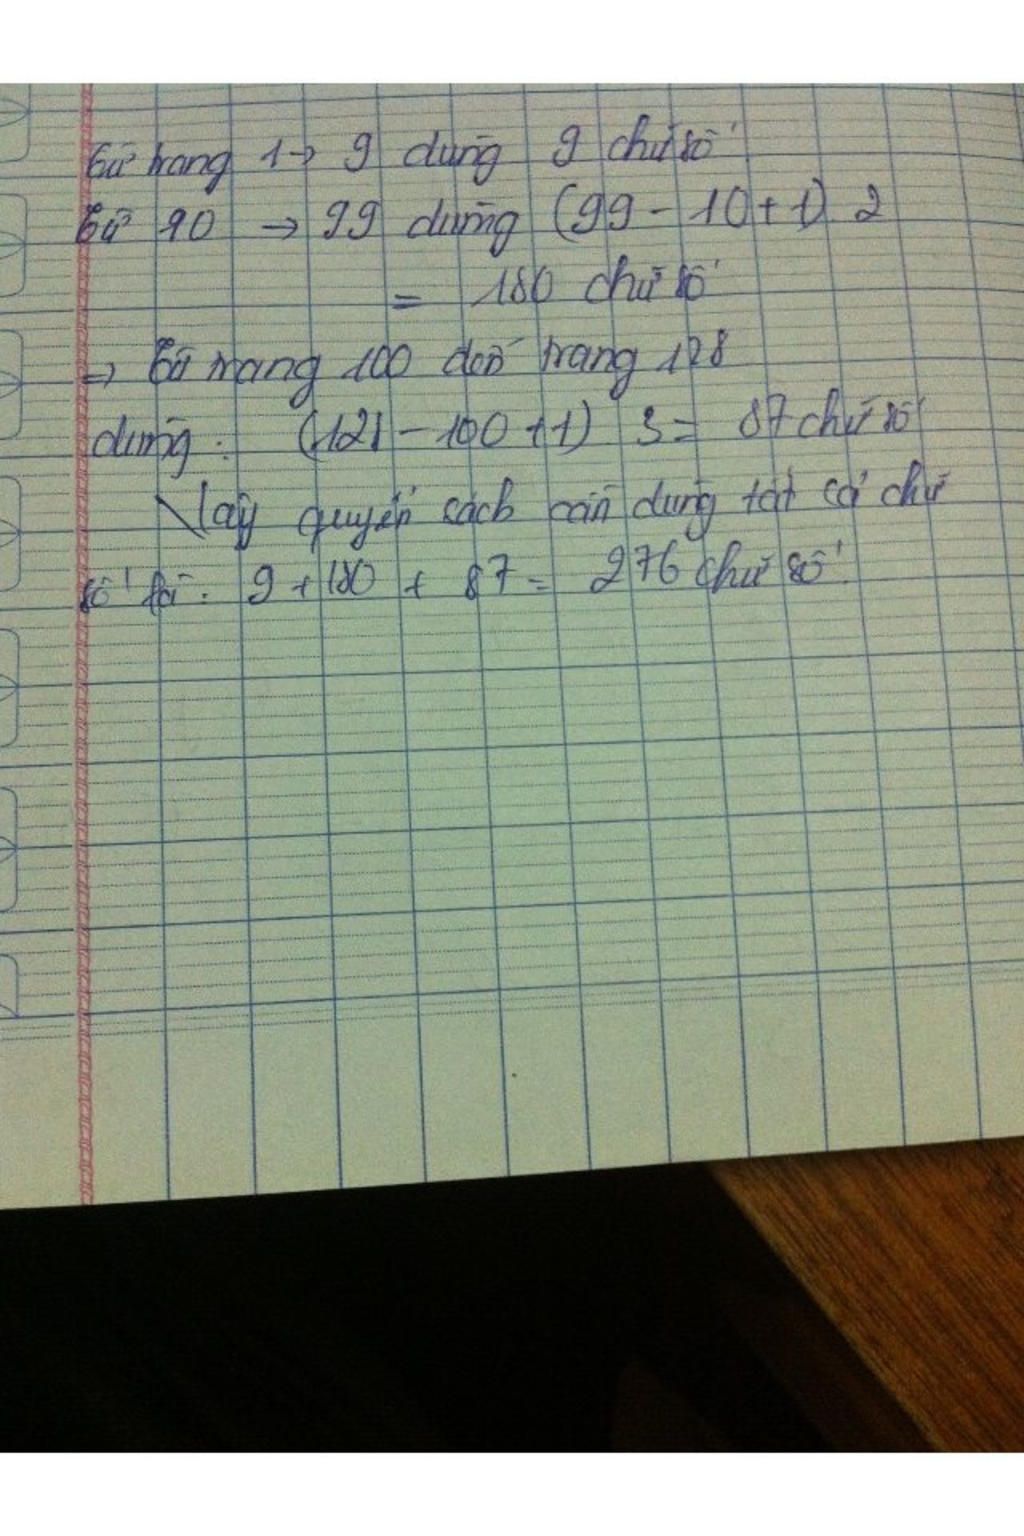 từ trang 1 → 9 dùng 9 chữ số
từ 10 → 99 dùng (99 - 10 + 1) 2
= 180 chữ số
⇒ từ trang 100 đến trang 128
dùng: (128 - 100 + 1) 3 = 87 chữ số
Vậy quyển sách cần dùng tất cả chữ
số là: 9 + 180 + 87 = 276 chữ số.